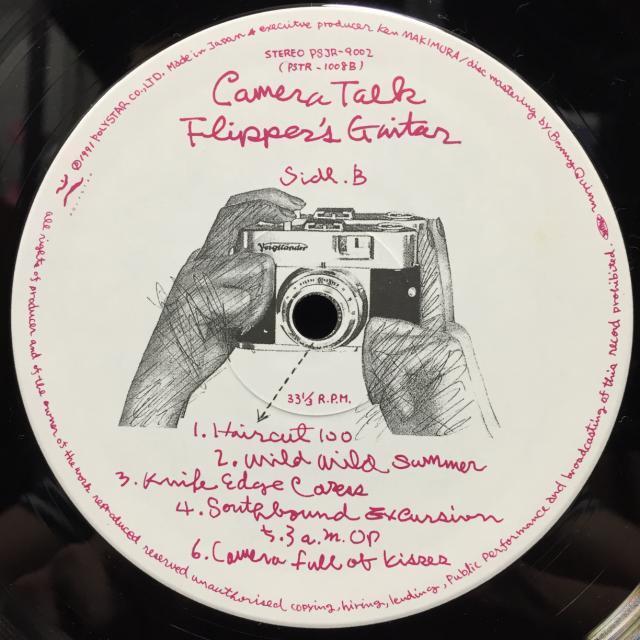 ℗1991 POLYSTAR CO.,LTD. Made in Japan executive producer Ken MAKIMURA/disc mastering by Benny Quinn
STEREO PSJR-9002
(PSTR-1008B)
Camera Talk
Flipper's Guitar
Side.B
Voigtländer
33⅓ R.P.M.
1. Haircut 100
2. Wild Wild Summer
3. Knife Edge Caress
4. Southbound Excursion
5. 3 a.m. OP
6. Camera full of kisses
all rights of producer and of the owner of the work reproduced reserved unauthorised copying, hiring, lending, Public Performance and broadcasting of this record prohibited.